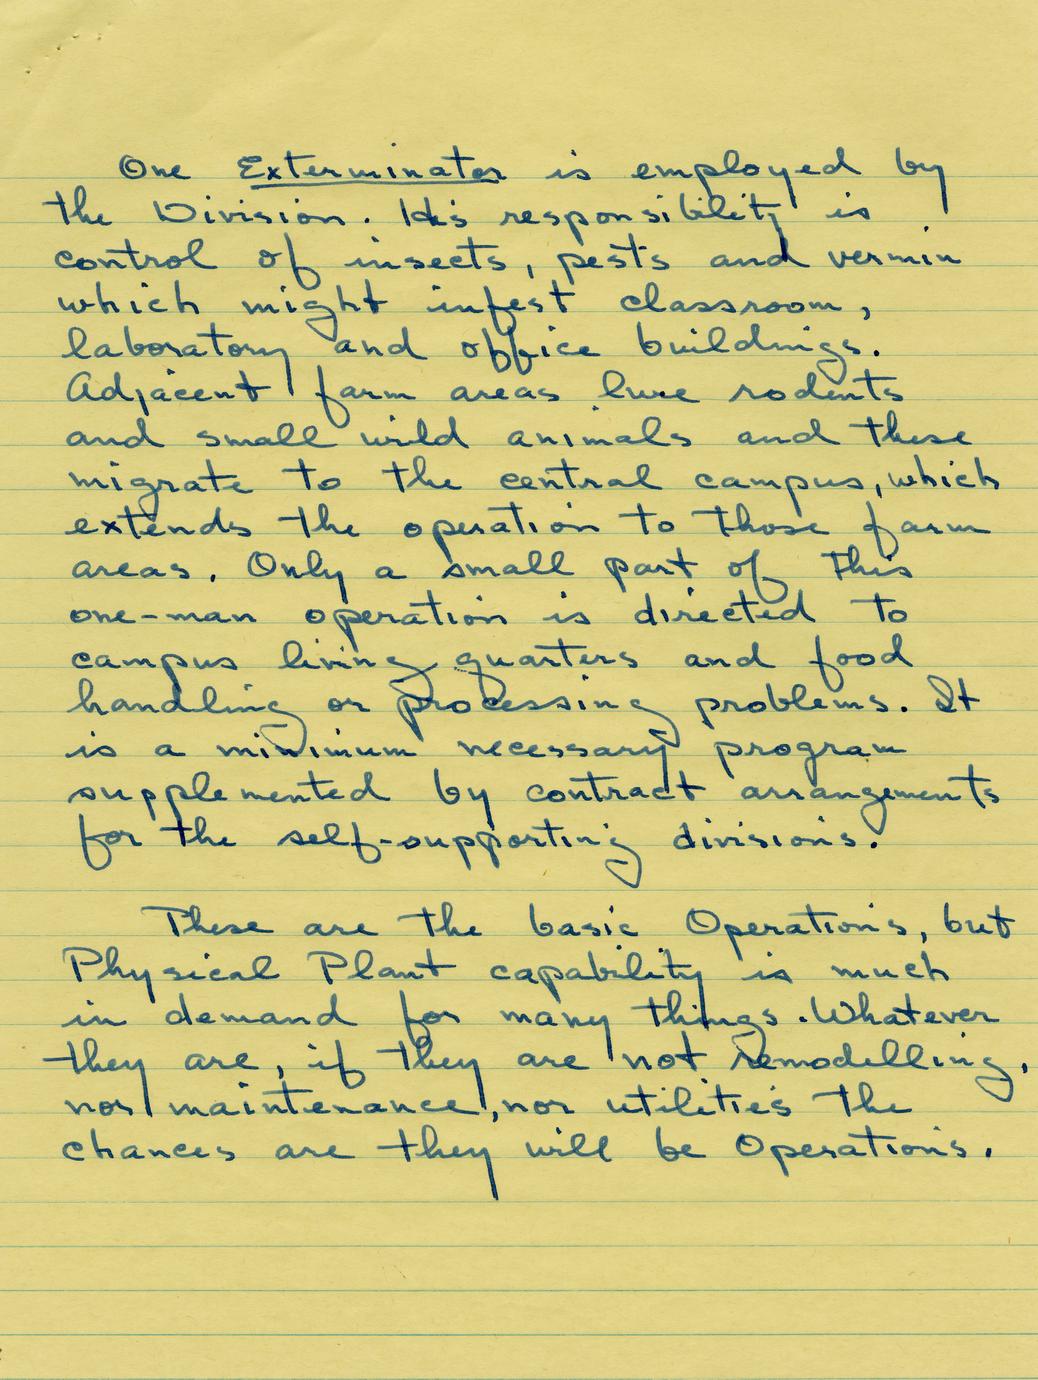 One Exterminator is employed by
the Division. His responsibility is
control of insects, pests and vermin
which might infest classroom,
laboratory and office buildings.
Adjacent farm areas lure rodents
and small wild animals and these
migrate to the central campus, which
extends the operation to those farm
areas. Only a small part of this
one-man operation is directed to
campus living quarters and food
handling or processing problems. It
is a minimum necessary program
supplemented by contract arrangements
for the self-supporting divisions.
These are the basic Operations, but
Physical Plant capability is much
in demand for many things. Whatever
they are, if they are not remodelling,
nor maintenance, nor utilities the
chances are they will be Operations.